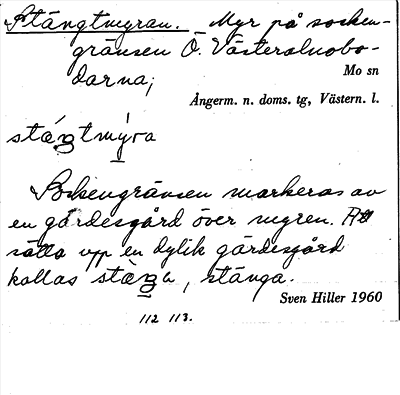 Stängtmyran. Myr på socken-
gränsen Ö. Västeralnobo-
darna;
Mo sn
Ångerm. n. doms. tg, Västern. l.
stæŋtmýra
Sockengränsen markeras av
en gärdesgård över myren. Att
sätta upp en dylik gärdesgård
kallas stæŋa, stänga.
Sven Hiller 1960
112 113.